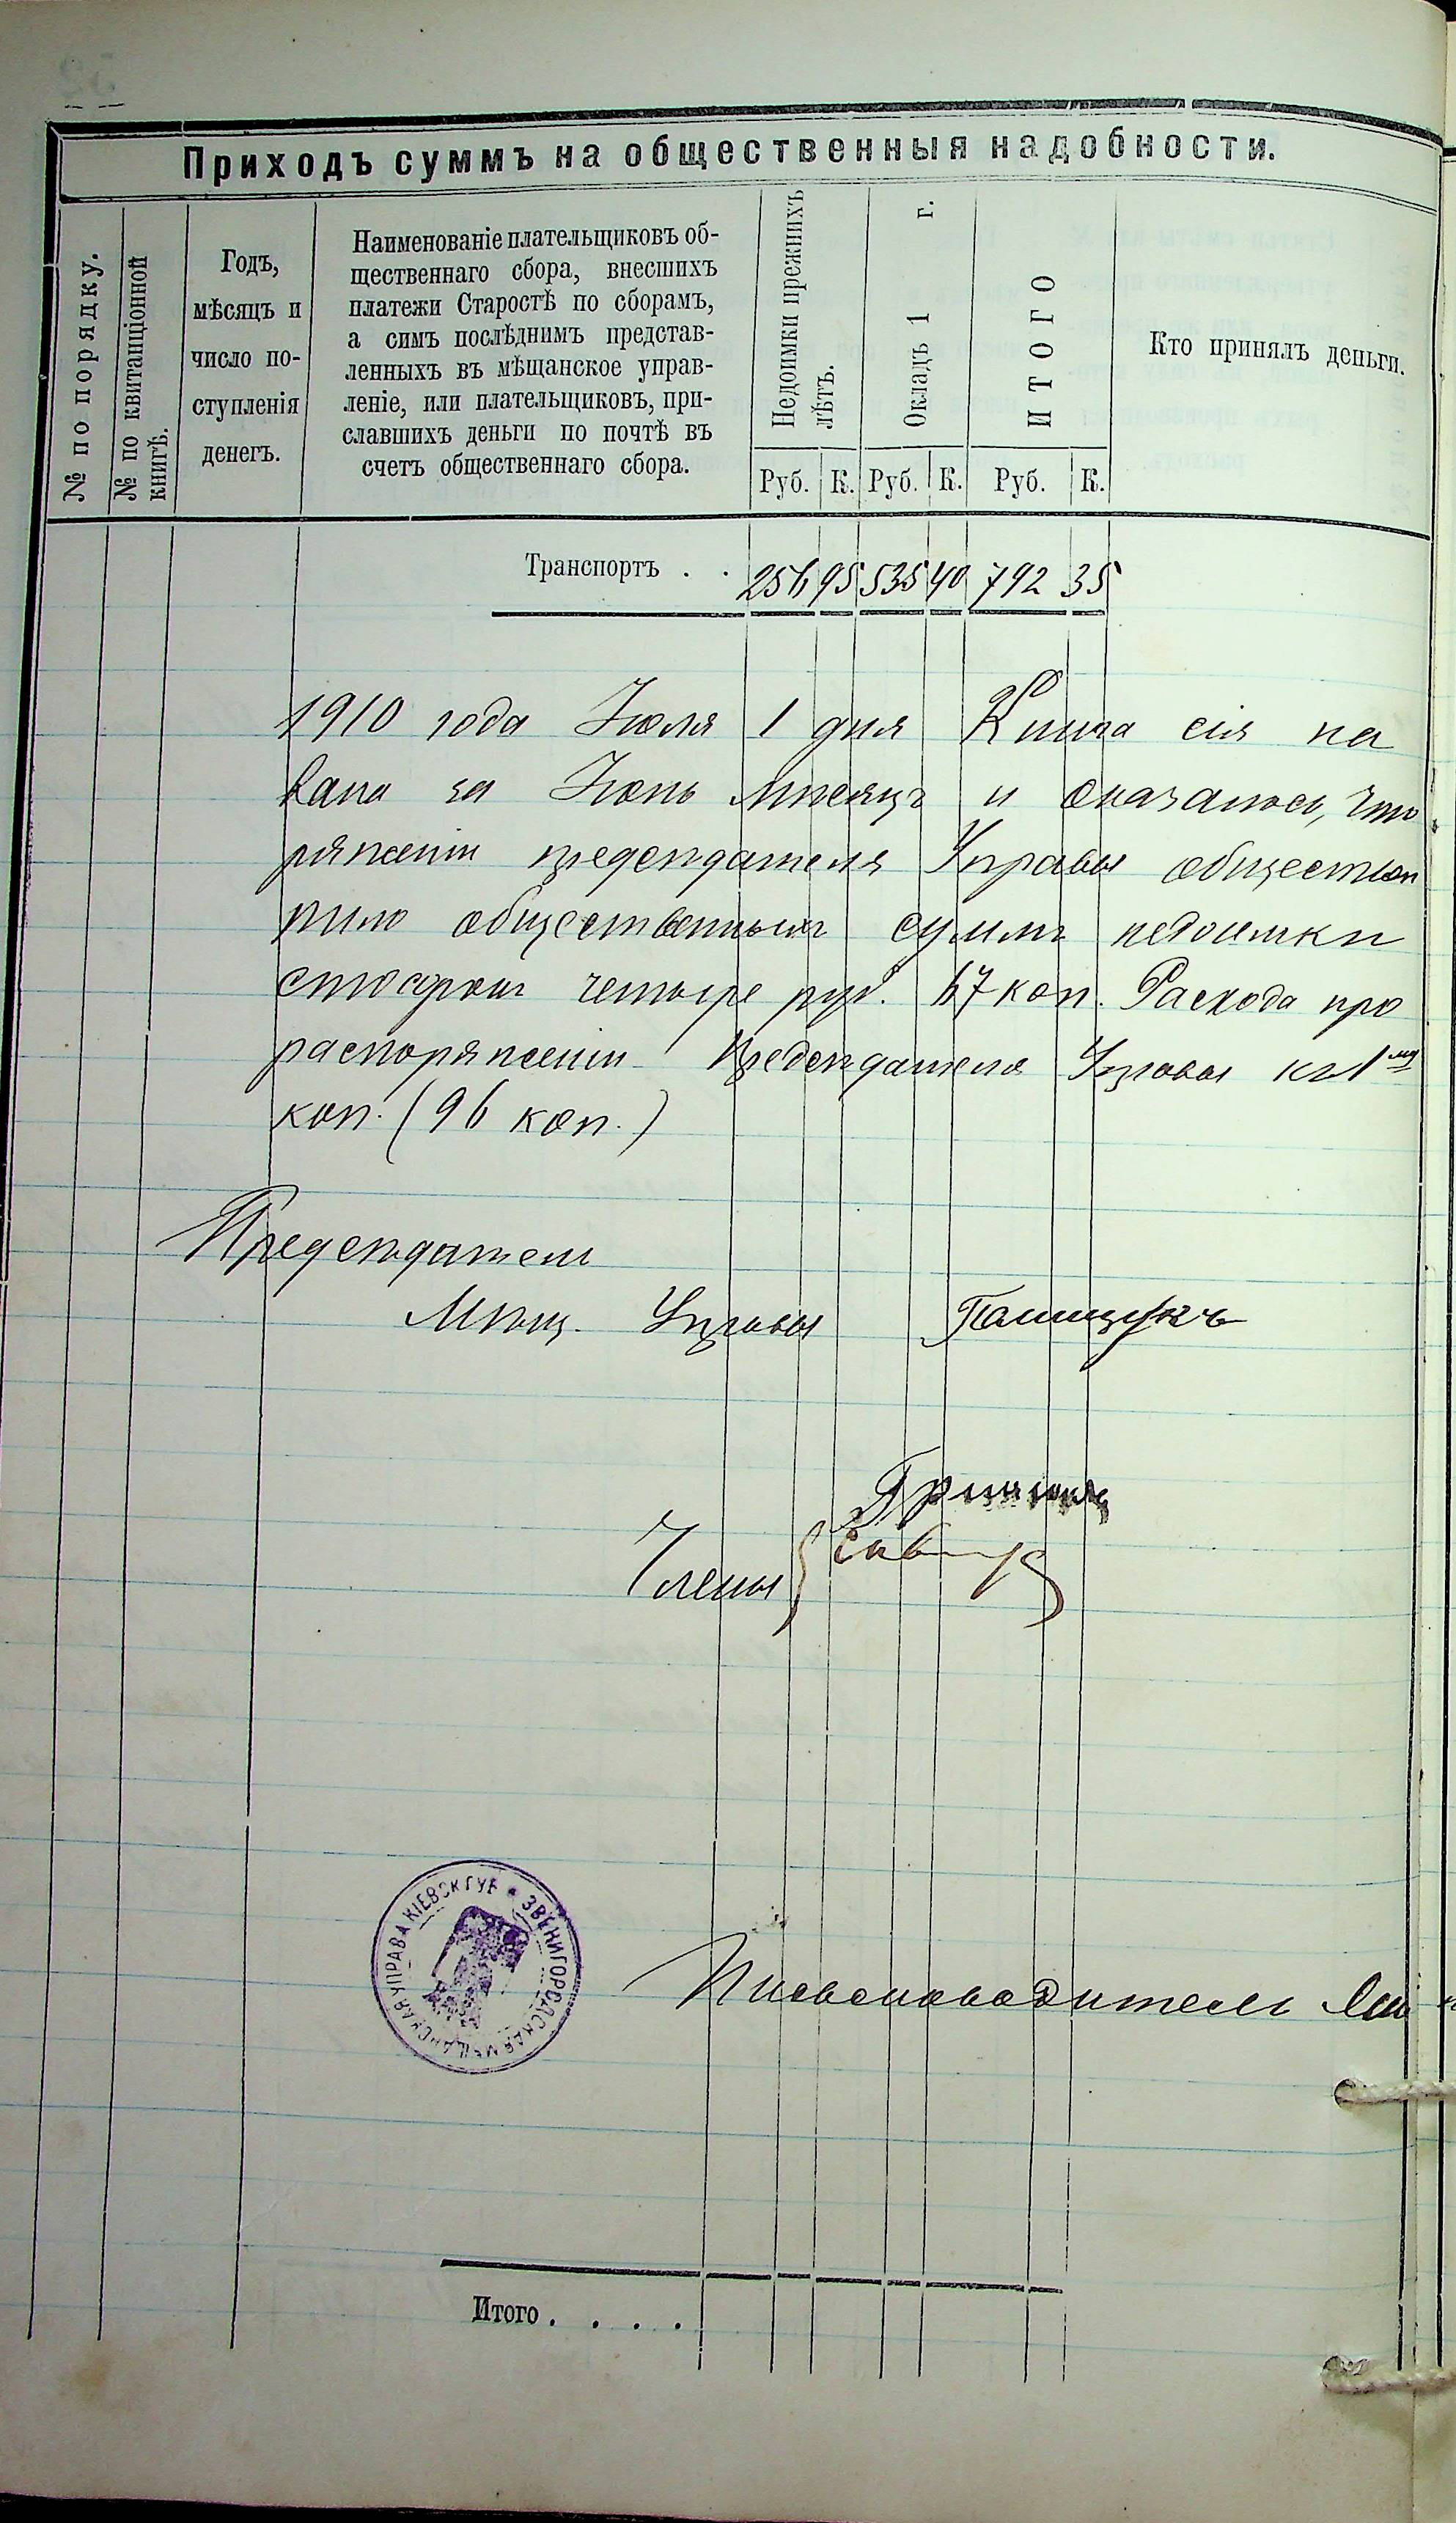 Приходъ суммъ на общественныя надобности.
№ по порядку.
№ по квитанціонной
книгѣ.
Годъ,
мѣсяцъ и
число по-
ступленія
денегъ.
Наименованіе плательщиковъ об-
щественнаго сбора, внесшихъ
платежи Старостѣ по сборамъ,
а симъ послѣднимъ представ-
ленныхъ въ мѣщанское управ-
леніе, или плательщиковъ, при-
славшихъ деньги по почтѣ въ
счетъ общественнаго сбора.
Недоимки прежнихъ
лѣтъ.
Окладъ 1 г.
ИТОГО
Кто принялъ деньги.
Руб. К. Руб. К. Руб. К.
Транспортъ . . 256 95 535 40 792 35
1910 года Іюля 1 дня Книга сія на
вана за Іюнь мѣсяцъ и оказалось, что
ряженіи предсѣдателя Управы обществен
пило общественныхъ суммъ недоимки
стосорокъ четыре руб. 67 коп. Расхода про
распоряженіи Предсѣдателя Управы къ 1му
коп. (96 коп.)
Предсѣдатель
Мѣщ. Управы Полищукъ
Члены
ЗВЕНИГОРОДСКАЯ МѢЩАНСКАЯ УПРАВА КІЕВСК ГУБ
Письмоводитель
Итого . . . .